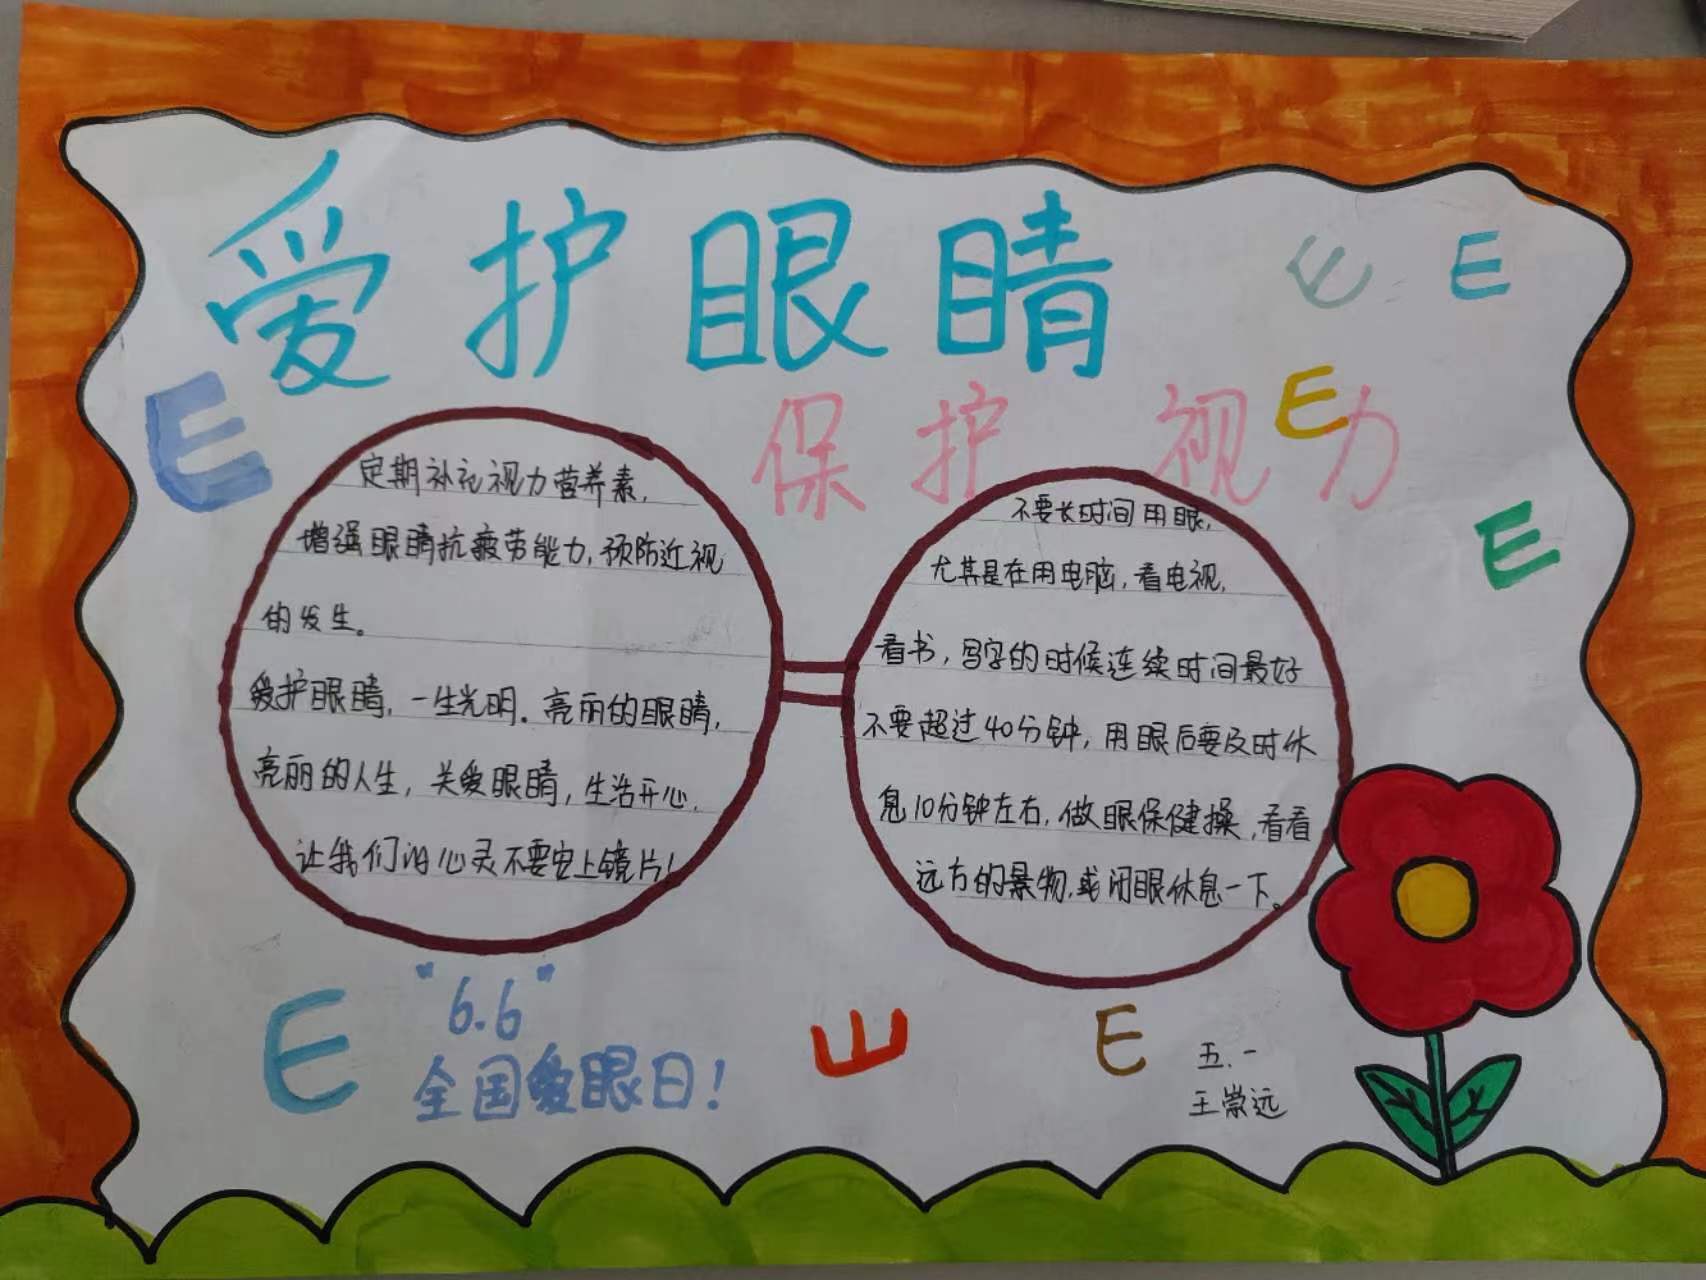 爱护眼睛
E E
保护视力
E
E
E
定期补充视力营养素,
增强眼睛抗疲劳能力,预防近视
的发生。
爱护眼睛,一生光明。亮丽的眼睛,
亮丽的人生,关爱眼睛,生活开心,
让我们的心灵不要安上镜片!
不要长时间用眼,
尤其是在用电脑,看电视,
看书,写字的时候连续时间最好
不要超过40分钟,用眼后要及时休
息10分钟左右,做眼保健操,看看
远方的景物,或闭眼休息一下。
E
"6.6"
全国爱眼日!
E
E
五.一
王崇远